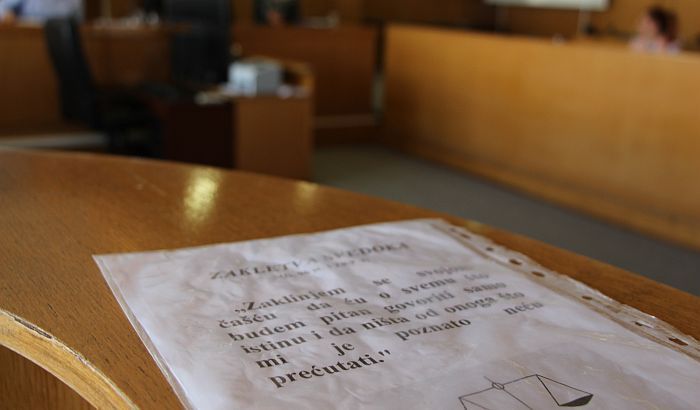 ZAKLETVA SVEDOKA
„Zaklinjem se svojom
čašću da ću o svemu što
budem pitan govoriti samo
istinu i da ništa od onoga što
mi je poznato neću
prećutati.“